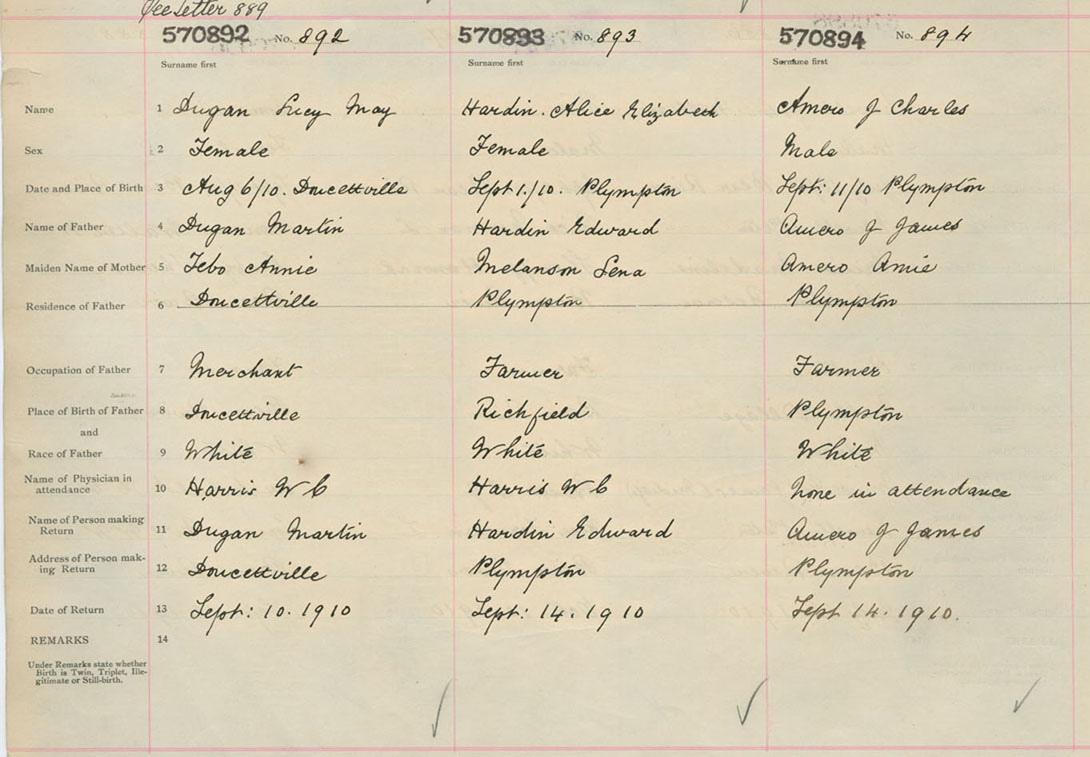 See Letter 889
570892 No. 892 570893 No. 893 570894 No. 894
Surname first Surname first Surname first
Name 1 Dugan Lucy May Hardin. Alice Elizabeth Amero J Charles
Sex 2 Female Female Male
Date and Place of Birth 3 Aug 6/10. Doucettville Sept 1./10. Plympton Sept: 11/10 Plympton
Name of Father 4 Dugan Martin Hardin Edward Amero J James
Maiden Name of Mother 5 Tebo Annie Melanson Lena Amero Amie
Residence of Father 6 Doucettville Plympton Plympton
Occupation of Father 7 Merchant Farmer Farmer
Place of Birth of Father 8 Doucettville Richfield Plympton
and
Race of Father 9 White White White
Name of Physician in attendance 10 Harris W C Harris W C None in attendance
Name of Person making Return 11 Dugan Martin Hardin Edward Amero J James
Address of Person mak-ing Return 12 Doucettville Plympton Plympton
Date of Return 13 Sept: 10. 1910 Sept: 14. 1910 Sept 14. 1910.
REMARKS 14
Under Remarks state whether
Birth is Twin, Triplet, Ille-
gitimate or Still-birth.